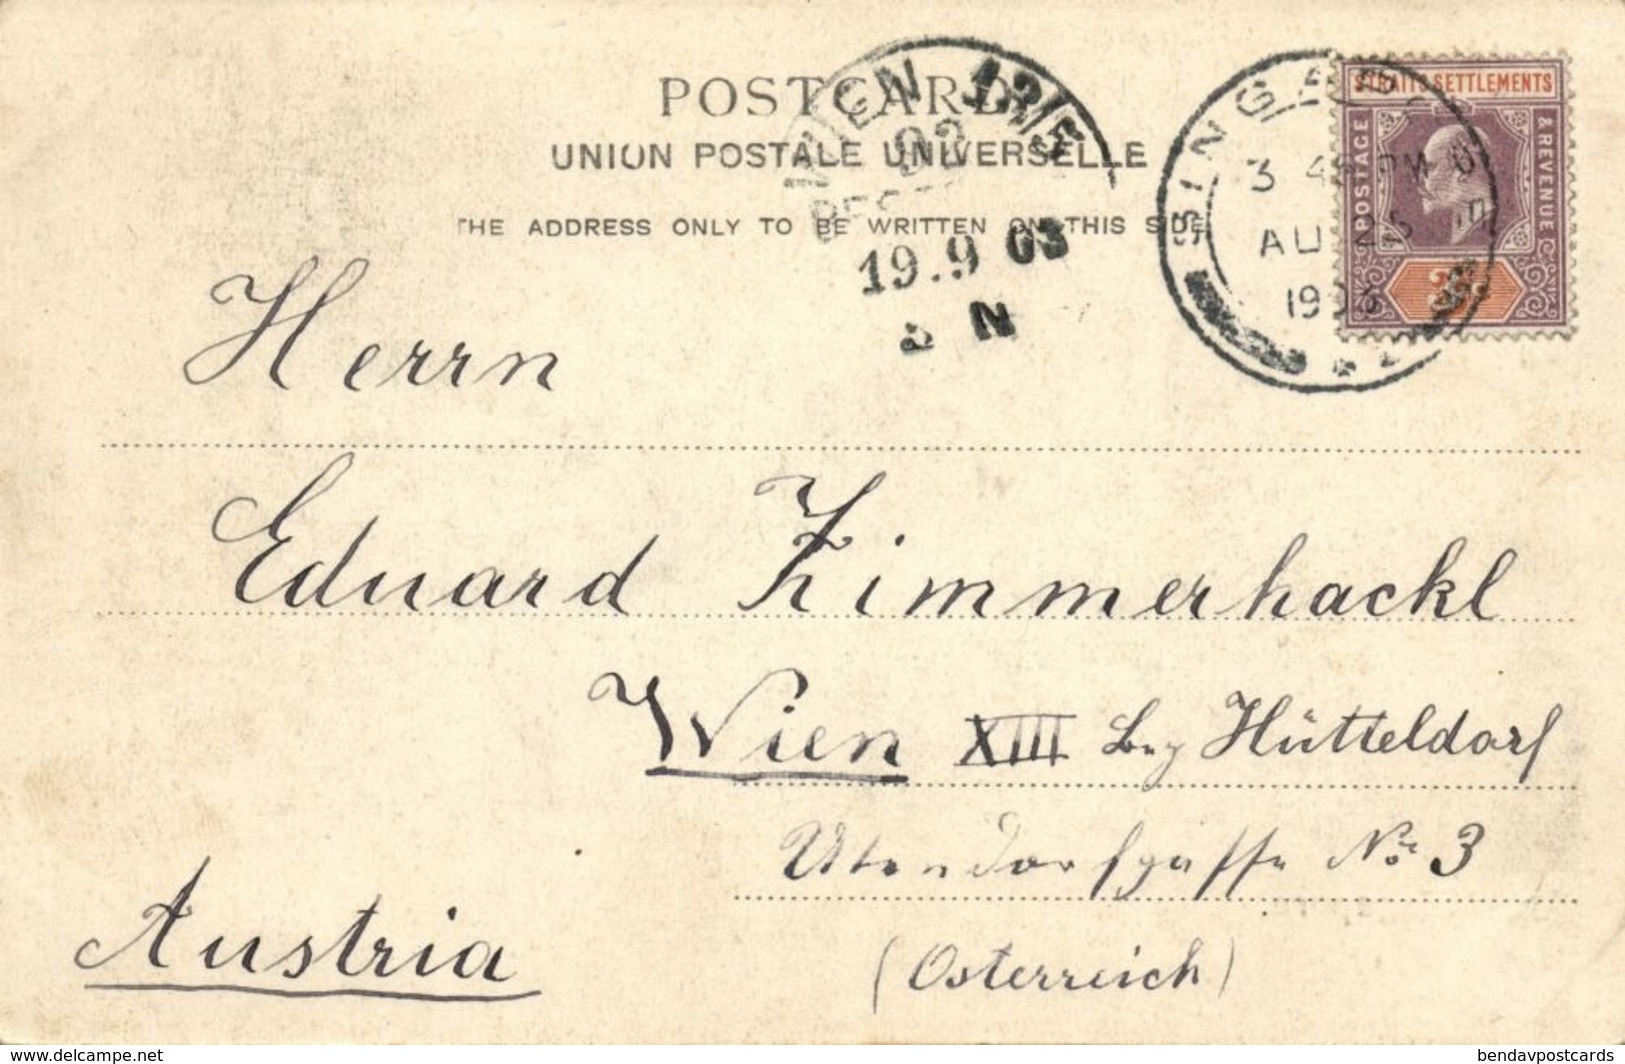 POSTCARD
UNION POSTALE UNIVERSELLE
THE ADDRESS ONLY TO BE WRITTEN ON THIS SIDE
WIEN 13/5
19.9 03
N
SINGAP
3 PM
AU 25
1903
STRAITS SETTLEMENTS
POSTAGE
& REVENUE
Herrn
Eduard Zimmerhackl
Wien XIII Hütteldorf
Utendorfgasse No 3
Austria
(Osterreich)
www.delcampe.net
bendavpostcards